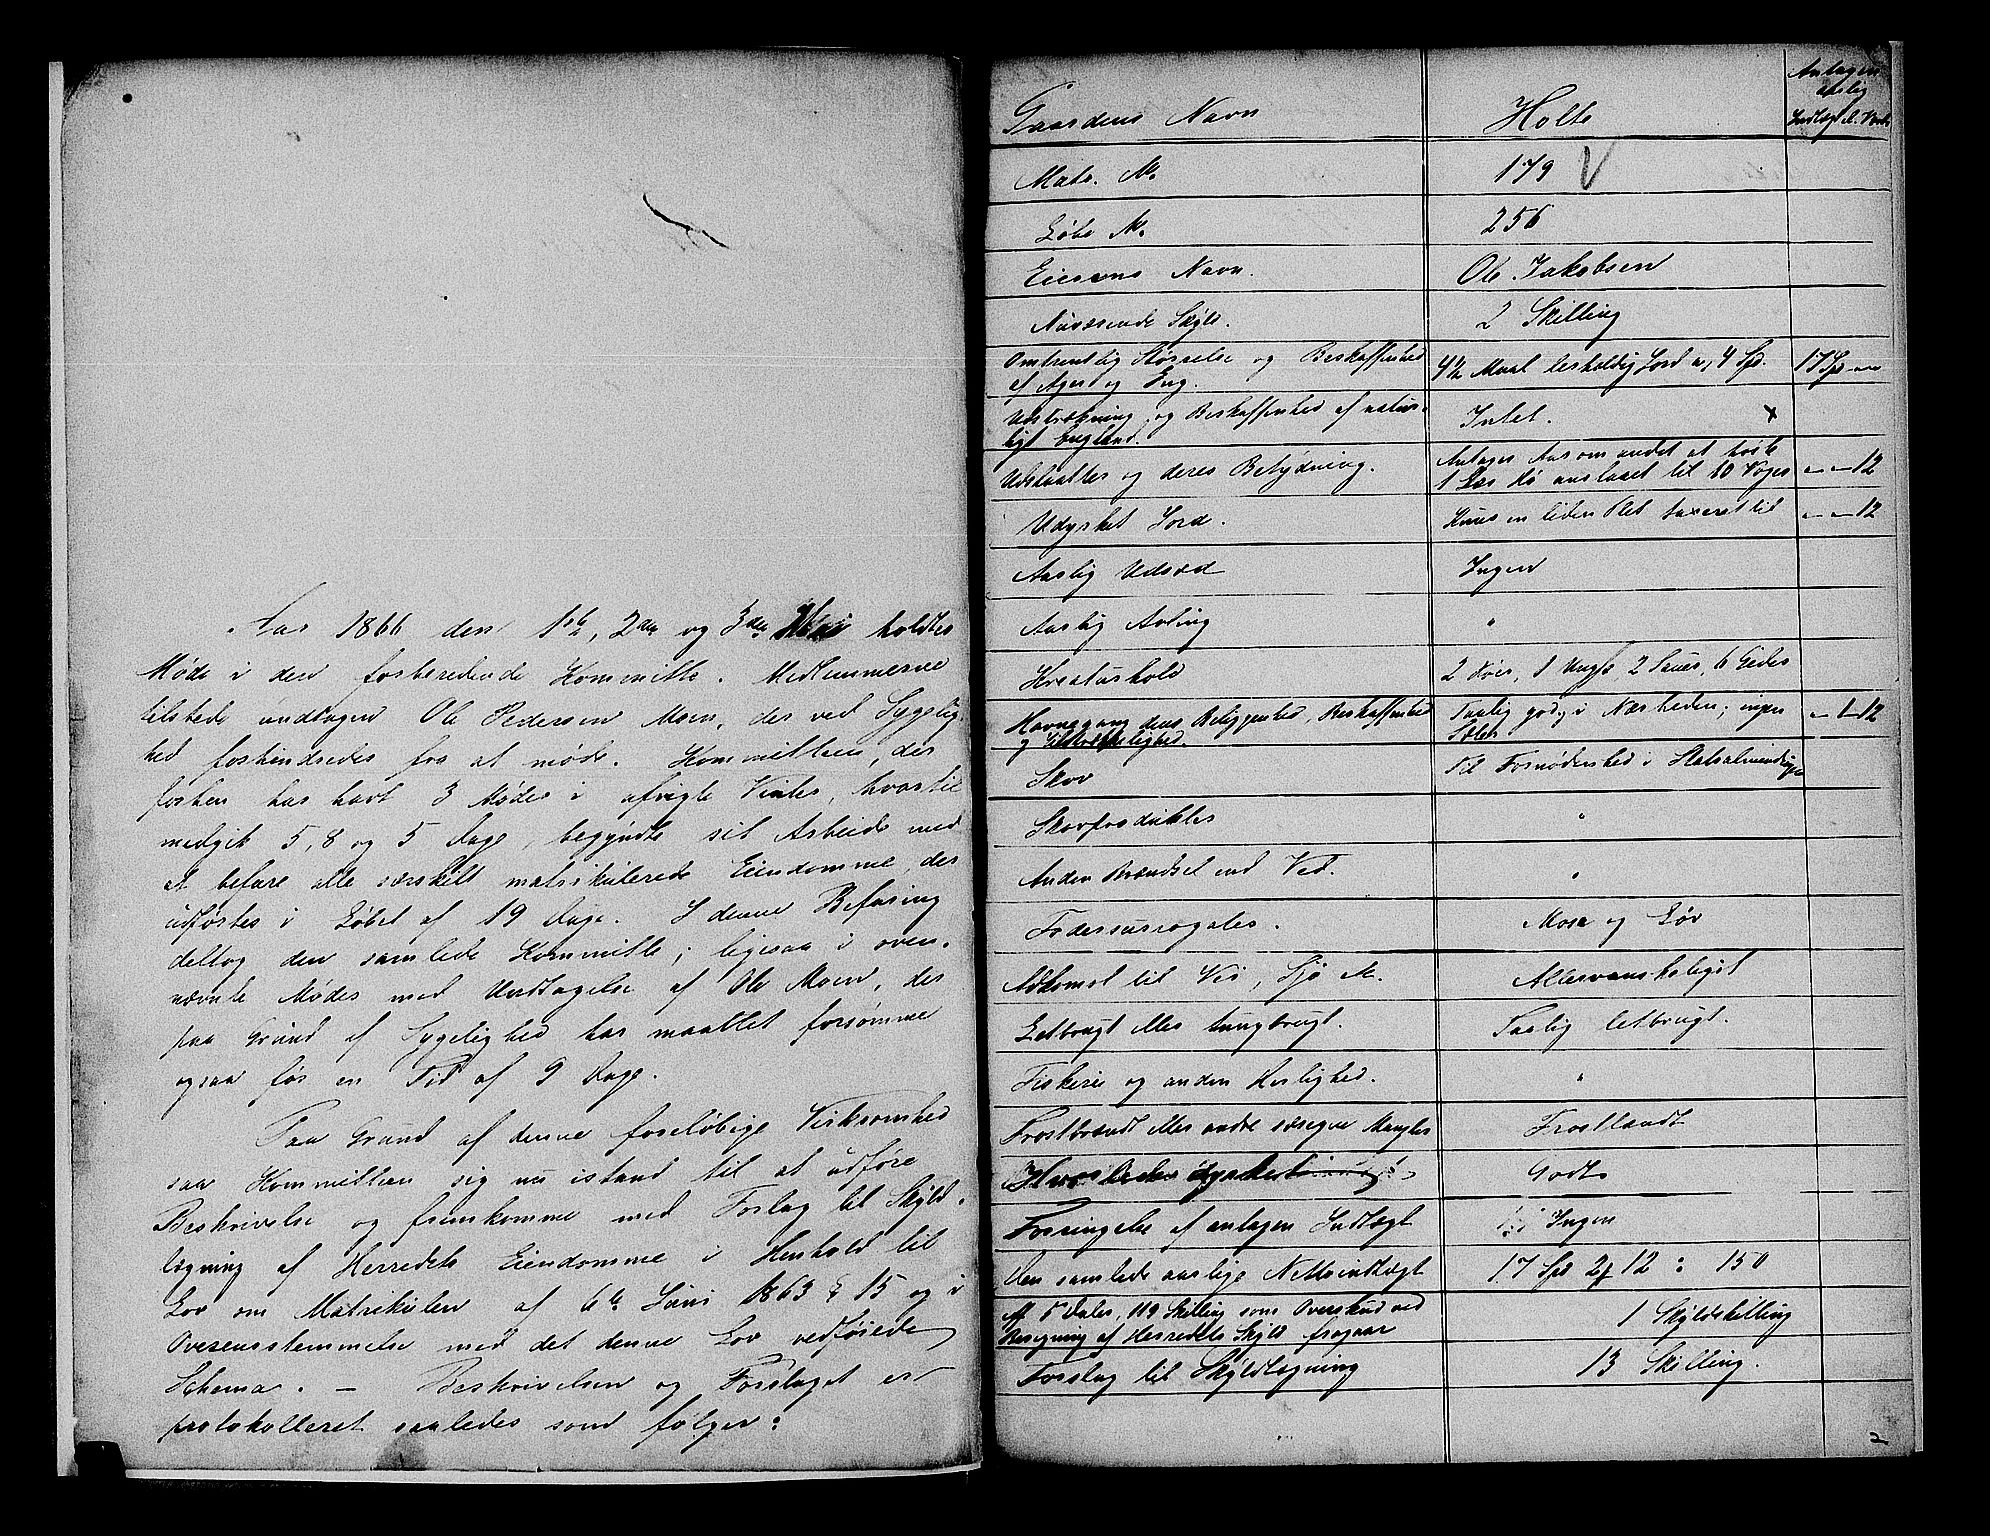 Aar 1866 den 1ste, 2den og 3den holdtes
Møde i den forberedende Kommitte. Medlemmerne
tilstede undtagen Ole Pedersen Moen, der ved Sygelig-
hed forhindredes fra at møde. Kommitteen, der
forhen har havt 3 Møder i afvigte Vinter, hvortil
medgik 5, 8 og 5 Dage, begyndte sit Arbeide med
at befare alle særskilt matrikulerede Eiendomme, der
udførtes i Løbet af 19 Dage. I denne Befaring
deltog den samlede Kommitte; ligesaa i oven-
nævnte Møder med Undtagelse af Ole Moen, der
paa Grund af Sygelighed har maattet forsømme
ogsaa før en Tid af 9 Dage.
Paa Grund af denne foreløbige Virksomhed
saa Kommitteen sig nu istand til at udføre
Beskrivelse og fremkomme med Forslag til Skyld-
lægning af Herredets Eiendomme i Henhold til
Lov om Matrikulen af 6te Juni 1863 § 15 og i
Overensstemmelse med det denne Lov vedføiede
Schema. — Beskrivelsen og Forslaget er
protokolleret saaledes som følger:
Gaardens Navn Holte Antagen aarlig Indtægt el. Værdi
Matr. No. 179 V
Løbe No. 256
Eierens Navn. Ole Jakobsen
Nuværende Skyld. 2 Skilling
Omtrentlig Størrelse og Beskaffenhed
af Ager og Eng. 4½ Maal lerholdig Jord a, 4 Spd. 17 Spd - -
Udstrækning og Beskaffenhed af natur-
ligt England. Intet. x
Udslaatter og deres Betydning. Antages Aar om andet at høste
1 Læs Hø anslaaet til 10 Voger - - 12
Udyrket Jord. Kuns en liden Plet taxeret til - - 12
Aarlig Udsæd Ingen
Aarlig Avling "
Kreaturhold 2 Kjør, 1 Ungf., 2 Sauer, 6 Geder
Havnegang dens Beliggenhed, Beskaffenhed
og Tilstrækkelighed. Taalig god, i Nærheden; ingen
Sæter - 1 - 12
Skov Til Fornødenhed i Statsalmindingen
Skovprodukter "
Anden Brændsel end Ved. "
Fodersurrogater. Mose og Løv
Adkomst til Vei, Sjø &. Allervanskeligst
Letbrugt eller tungbrugt. Taalig letbrugt.
Fiskeri og anden Herlighed. "
Frostbrændt eller andre særegne Mangler Frostlændt
Hvorledes dyrket Godt
Forringelse af antagen Indtægt Ingen
Den samlede aarlige Nettoindtægt 17 Spd 2 # 12 : 150
Af 5 Daler, 119 Skilling som Overskud ved
Beregning af Herredets Skyld fragaar 1 Skyldskilling
Forslag til Skyldlægning 13 Skilling.
2